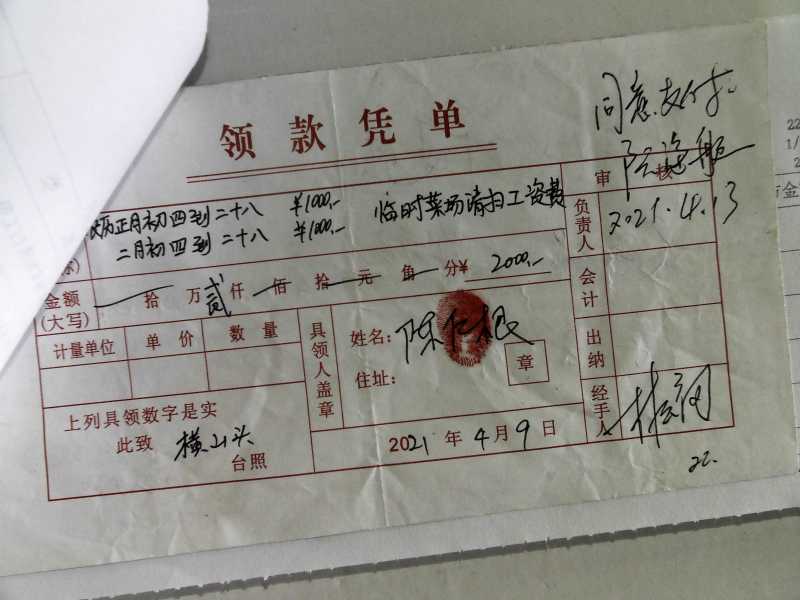 领款凭单
同意支付
审核
正月初四到二十八 ¥1000,-
临时菜场清扫工资费
二月初四到二十八 ¥1000,-
负责人
2021.4.13
金额
(大写)
拾万贰仟佰拾元角分¥ 2000,-
会计
计量单位 单价 数量
具领人盖章
姓名: 陈仁根
住址:
章
出纳
上列具领数字是实
此致 横山头
台照
2021年4月9日
经手人
22.
22
1/
2
金